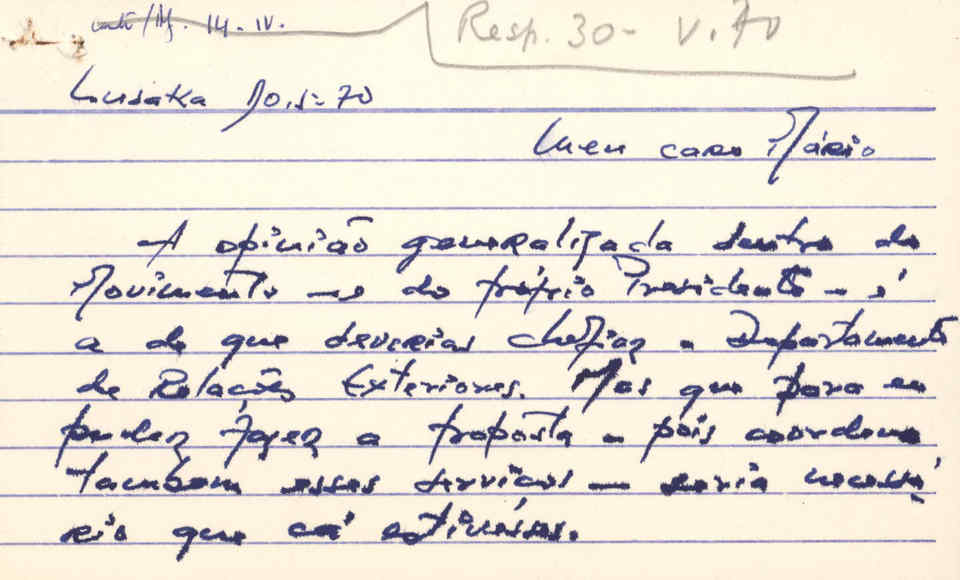 14.IV.
Resp. 30-V.70
Lusaka 10.5-70
Meu caro Mário
A opinião generalizada dentro do
Movimento - e do próprio Presidente - é
a de que deverias chefiar o Departamento
de Relações Exteriores. Mas que para eu
poder fazer a proposta - pois coordeno
também esses serviços - seria necessá
rio que cá estivésses.